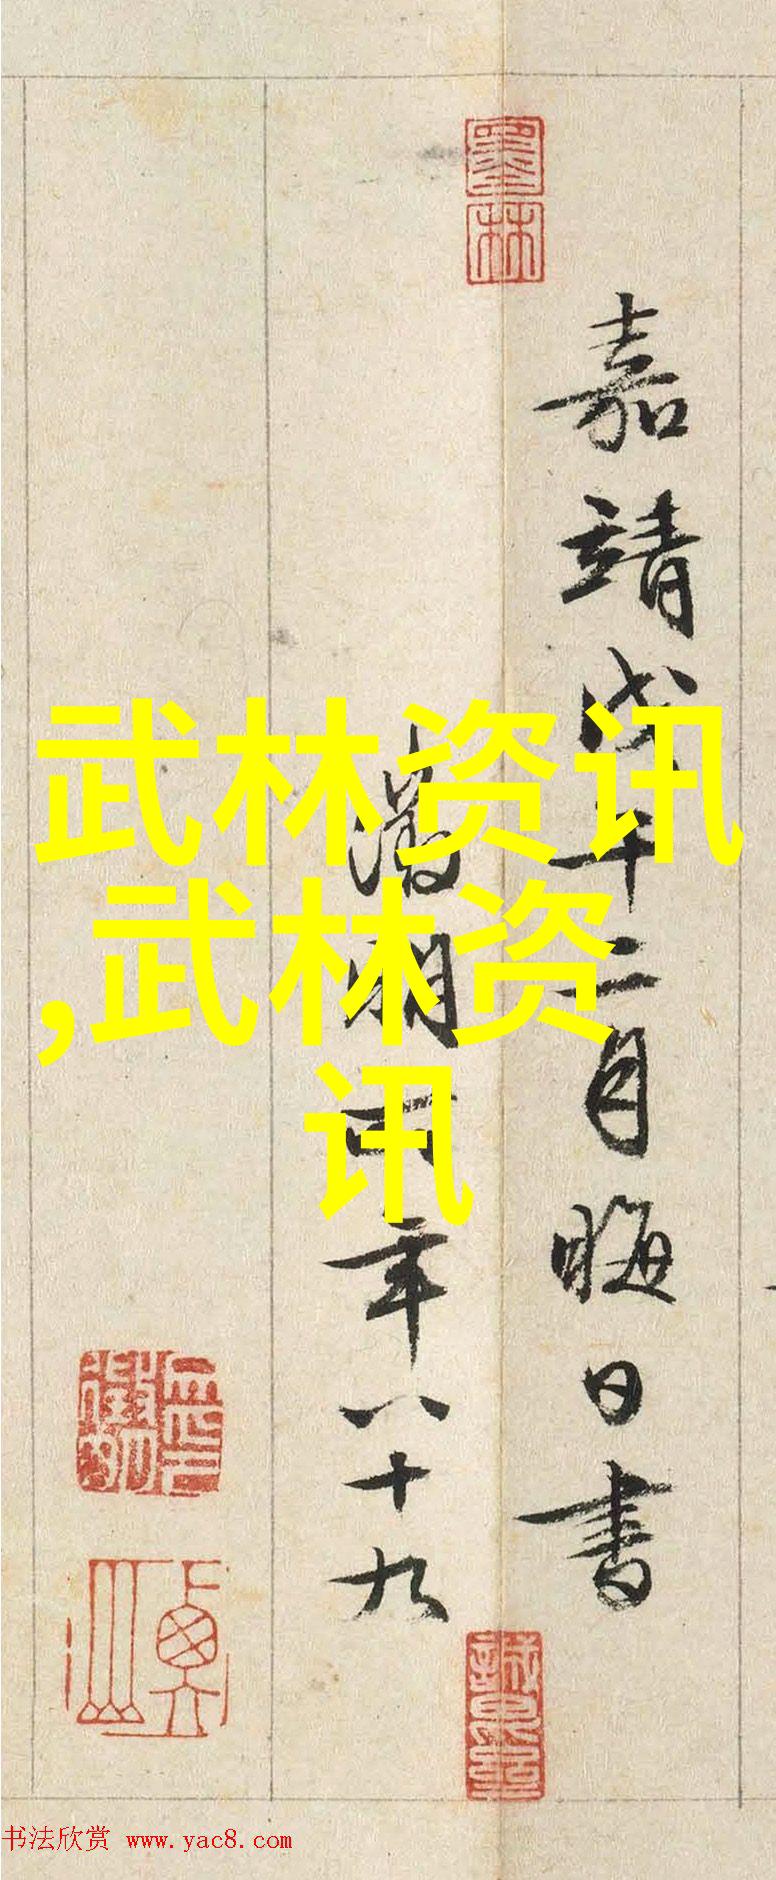 武林资讯
,武林资
讯
墨林
嘉靖戊午二月晦日書
徵明 年八十九
衡山
书法欣赏 www.yac8.com